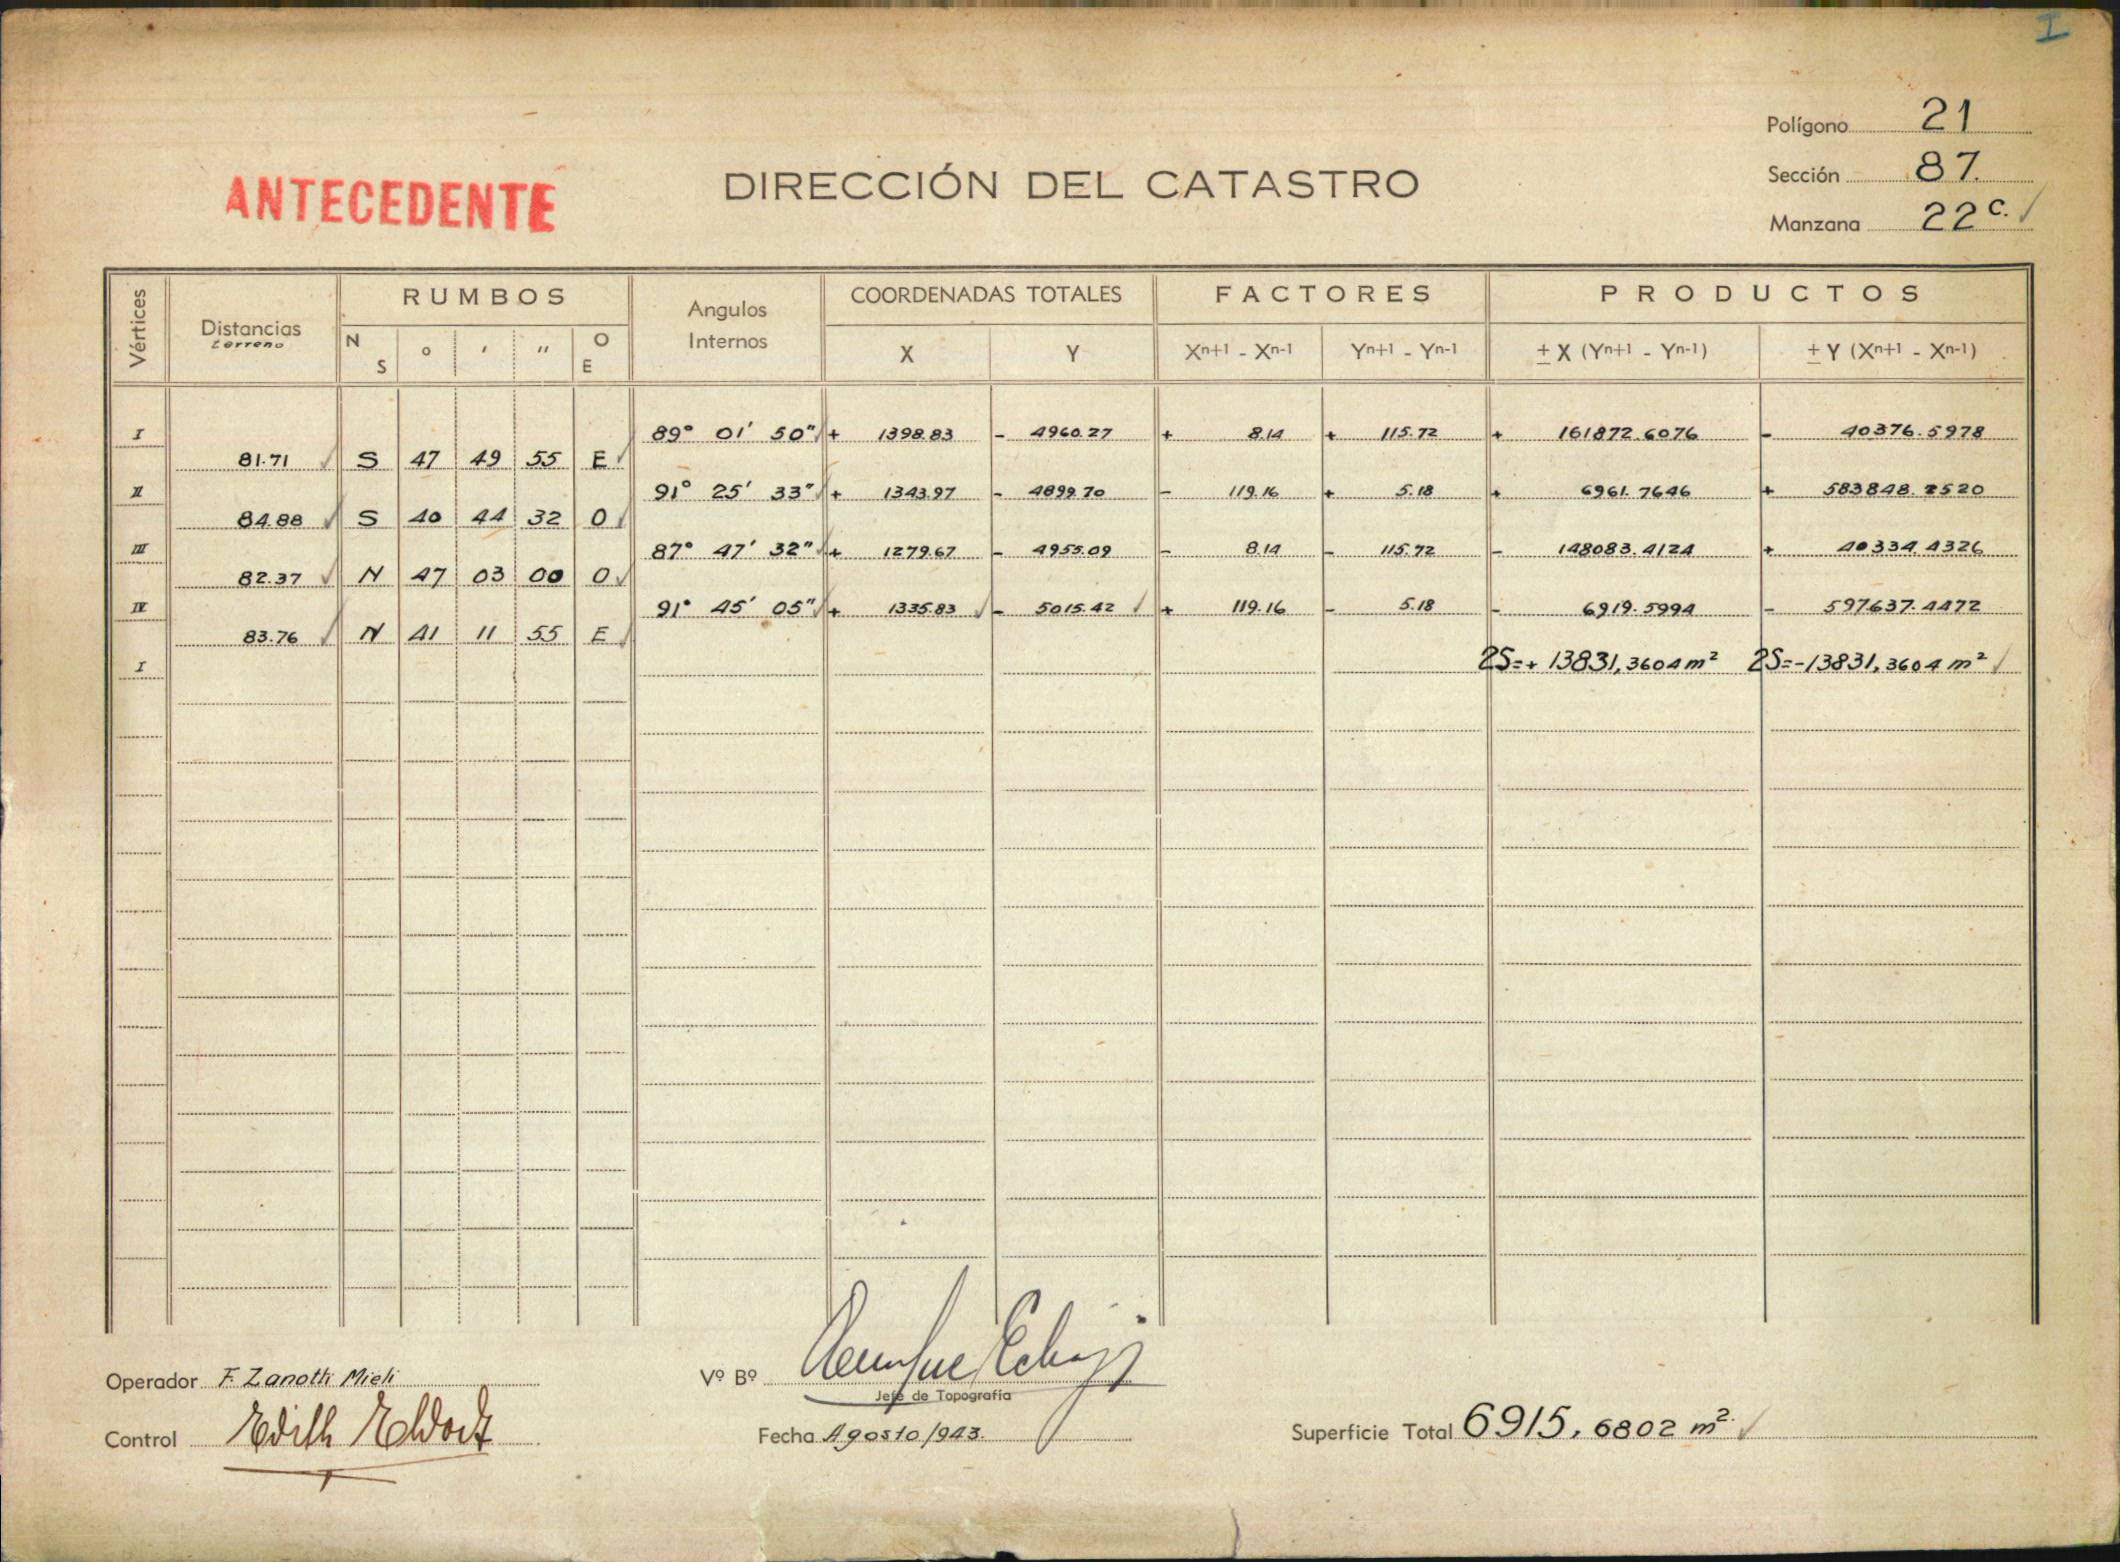 I
Polígono 21
Sección 87.
Manzana 22 c. ✓
ANTECEDENTE
DIRECCIÓN DEL CATASTRO
Vértices Distancias terreno RUMBOS Angulos Internos COORDENADAS TOTALES FACTORES PRODUCTOS
N S ° ' " O E X Y Xn+1 - Xn-1 Yn+1 - Yn-1 ± X (Yn+1 - Yn-1) ± Y (Xn+1 - Xn-1)
I 89° 01' 50" + 1398.83 - 4960.27 + 8.14 + 115.72 + 161872.6076 - 40376.5978
81.71 ✓ S 47 49 55 E ✓
II 91° 25' 33" + 1343.97 - 4899.70 - 119.16 + 5.18 + 6961.7646 + 583848.2520
84.88 ✓ S 40 44 32 O ✓
III 87° 47' 32" + 1279.67 - 4955.09 - 8.14 - 115.72 - 148083.4124 + 40334.4326
82.37 ✓ N 47 03 00 O ✓
IV 91° 45' 05" + 1335.83 ✓ - 5015.42 ✓ + 119.16 - 5.18 - 6919.5994 - 597637.4472
83.76 ✓ N 41 11 55 E ✓
I 2S=+ 13831,3604 m² 2S=-13831,3604 m² ✓
Operador F. Zanotti Mieli
Vº Bº
Jefe de Topografía
Control Edith
Fecha Agosto/943.
Superficie Total 6915,6802 m². ✓